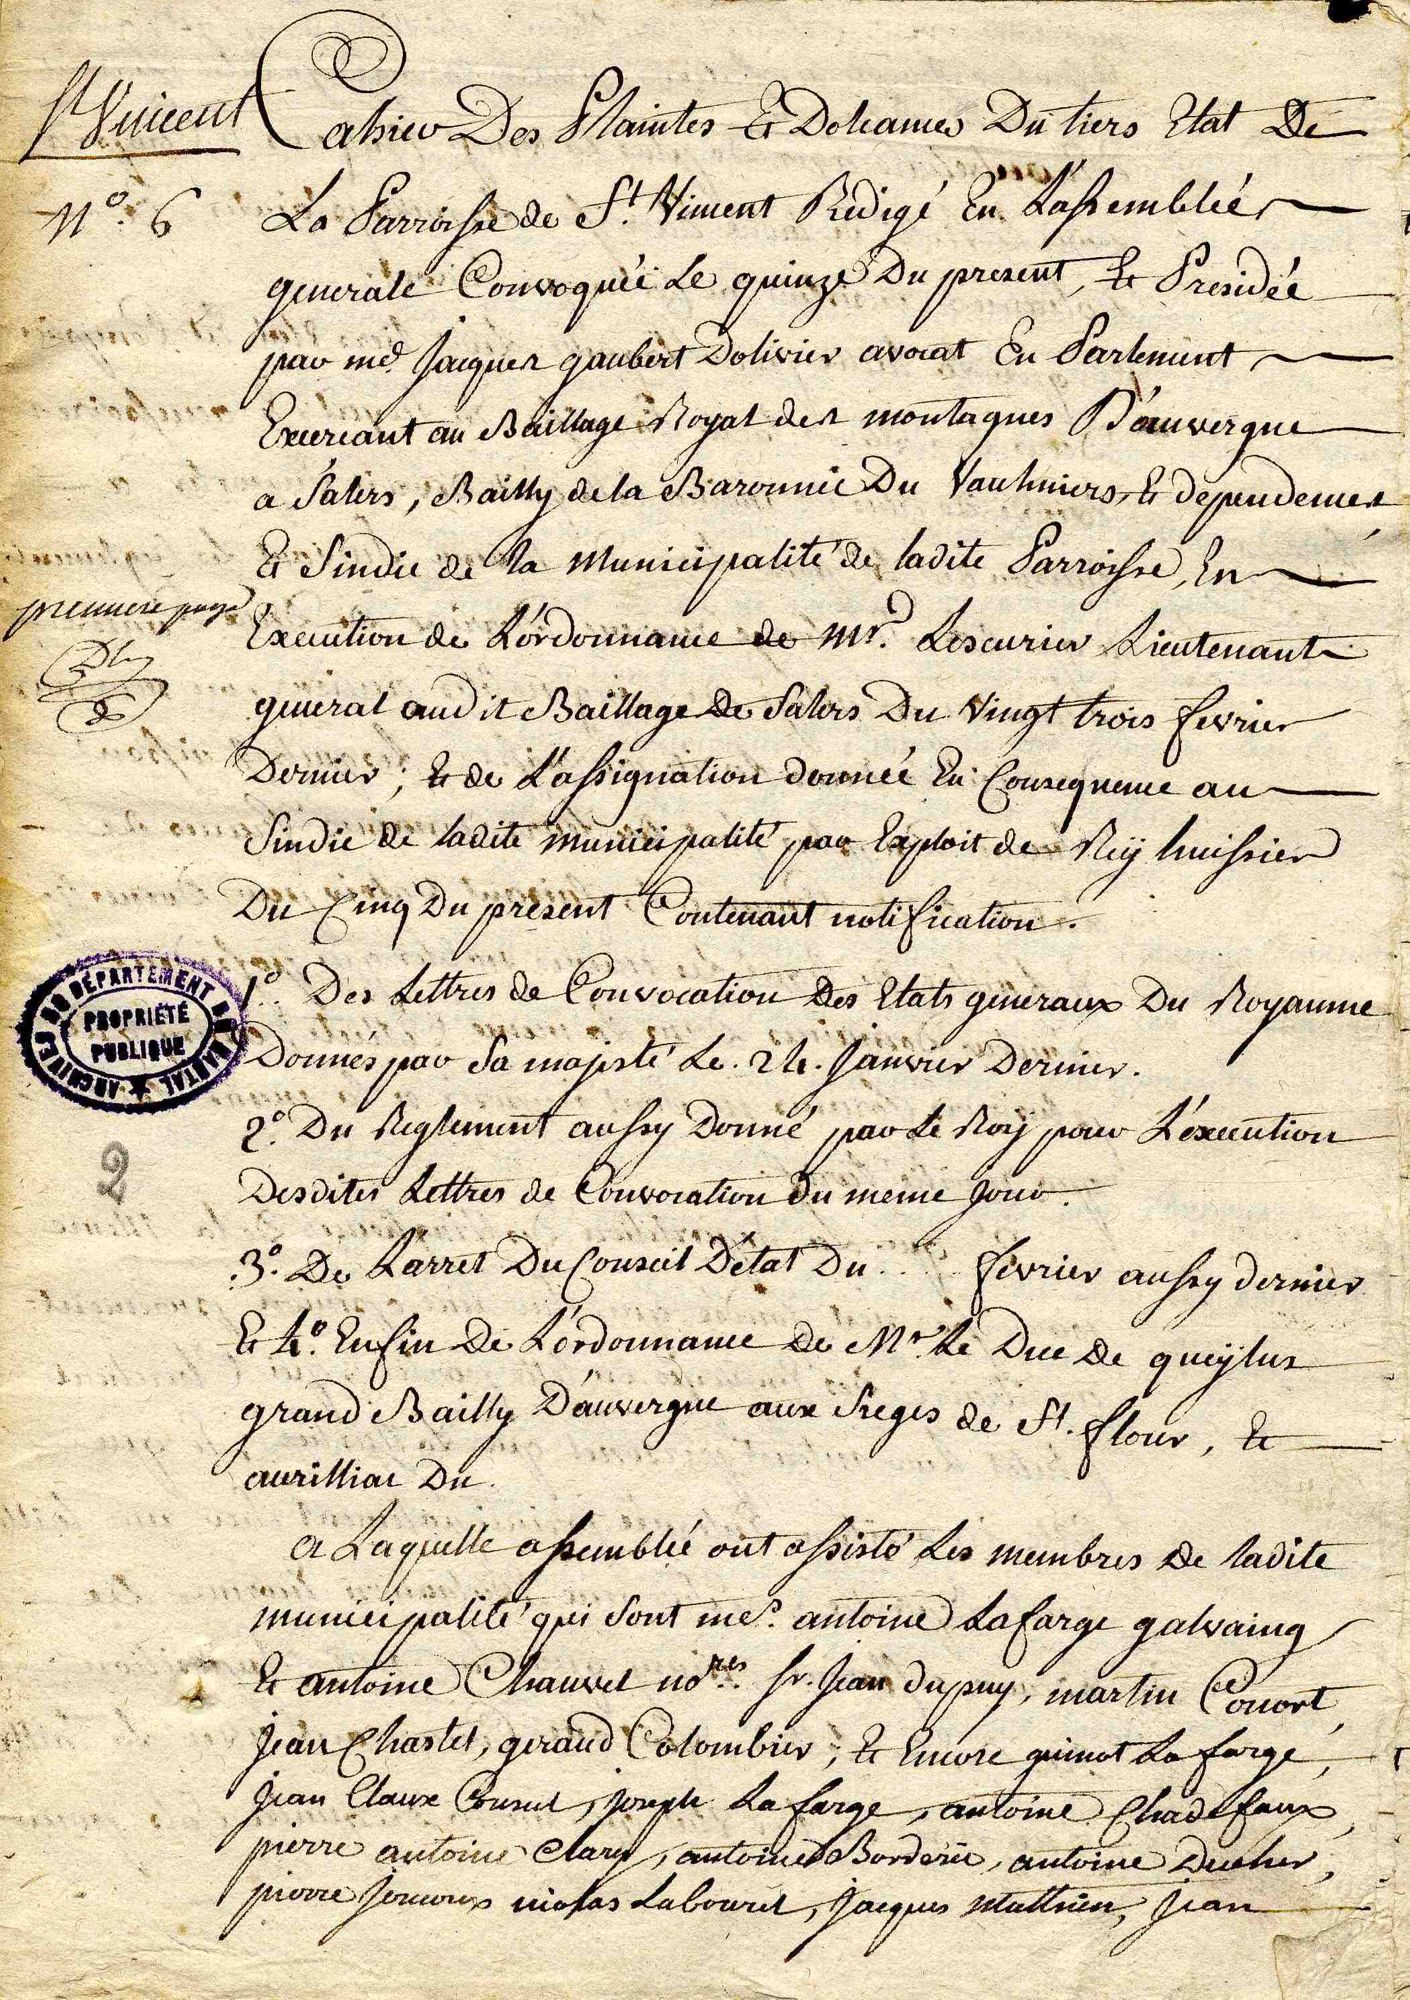 St Vincent
Cahier Des Plaintes Et Doleances Du tiers Etat De
N.º 6
La Parroisse de St. Vincent Redigé En L'assemblée
generale Convoquée Le quinze Du present, Et Presidée
par me. Jacques gaubert Dolivier avocat En Parlement
Exerceant au Baillage Royal des montagnes D'auvergne
a Salers, Bailly de la Baronnie Du Vaulmiers, Et dependences
Et Sindic de la Municipalité de ladite Parroisse, En
premiere page
Execution de L'ordonnance de Mr. Lescurier Lieutenant
general audit Baillage de Salers Du Vingt trois fevrier
Dernier; Et de L'assignation donnée En Consequence au
Sindic de ladite municipalité par Exploit de Reÿ huissier
Du Cinq Du present Contenant notification.
1.º Des Lettres de Convocation des Etats generaux Du Royaume
Donnés par Sa majesté Le. 24. Janvier Dernier.
ARCHIVES DU DÉPARTEMENT DU CANTAL
PROPRIÉTÉ
PUBLIQUE
2º. Du Reglement aussy Donné par Le Roÿ pour L'execution
2
Desdites Lettres de Convocation du meme Jour.
.3º. De L'arret Du Conseil D'état Du.... fevrier aussy dernier
Et 4.º Enfin De L'ordonnance de Mr. Le Duc de queÿlus
grand Bailly D'auvergne aux Sieges de St. flour, Et
aurilliac Du.
a Laquelle assemblée ont assisté Les membres de ladite
municipalité qui sont mes. antoine Lafarge galvaing
Et antoine Chauvet nores. sr. Jean dupuy, martin Conort,
Jean Chastel, geraud Colombier; Et Encore guinot Lafarge,
Jean Claux Consul, Joseph Lafarge, antoine Chadefaux,
pierre antoine Clary, antoine Borderie, antoine Ducher,
pierre nicolas Labouret, Jacques Mathieu, Jean